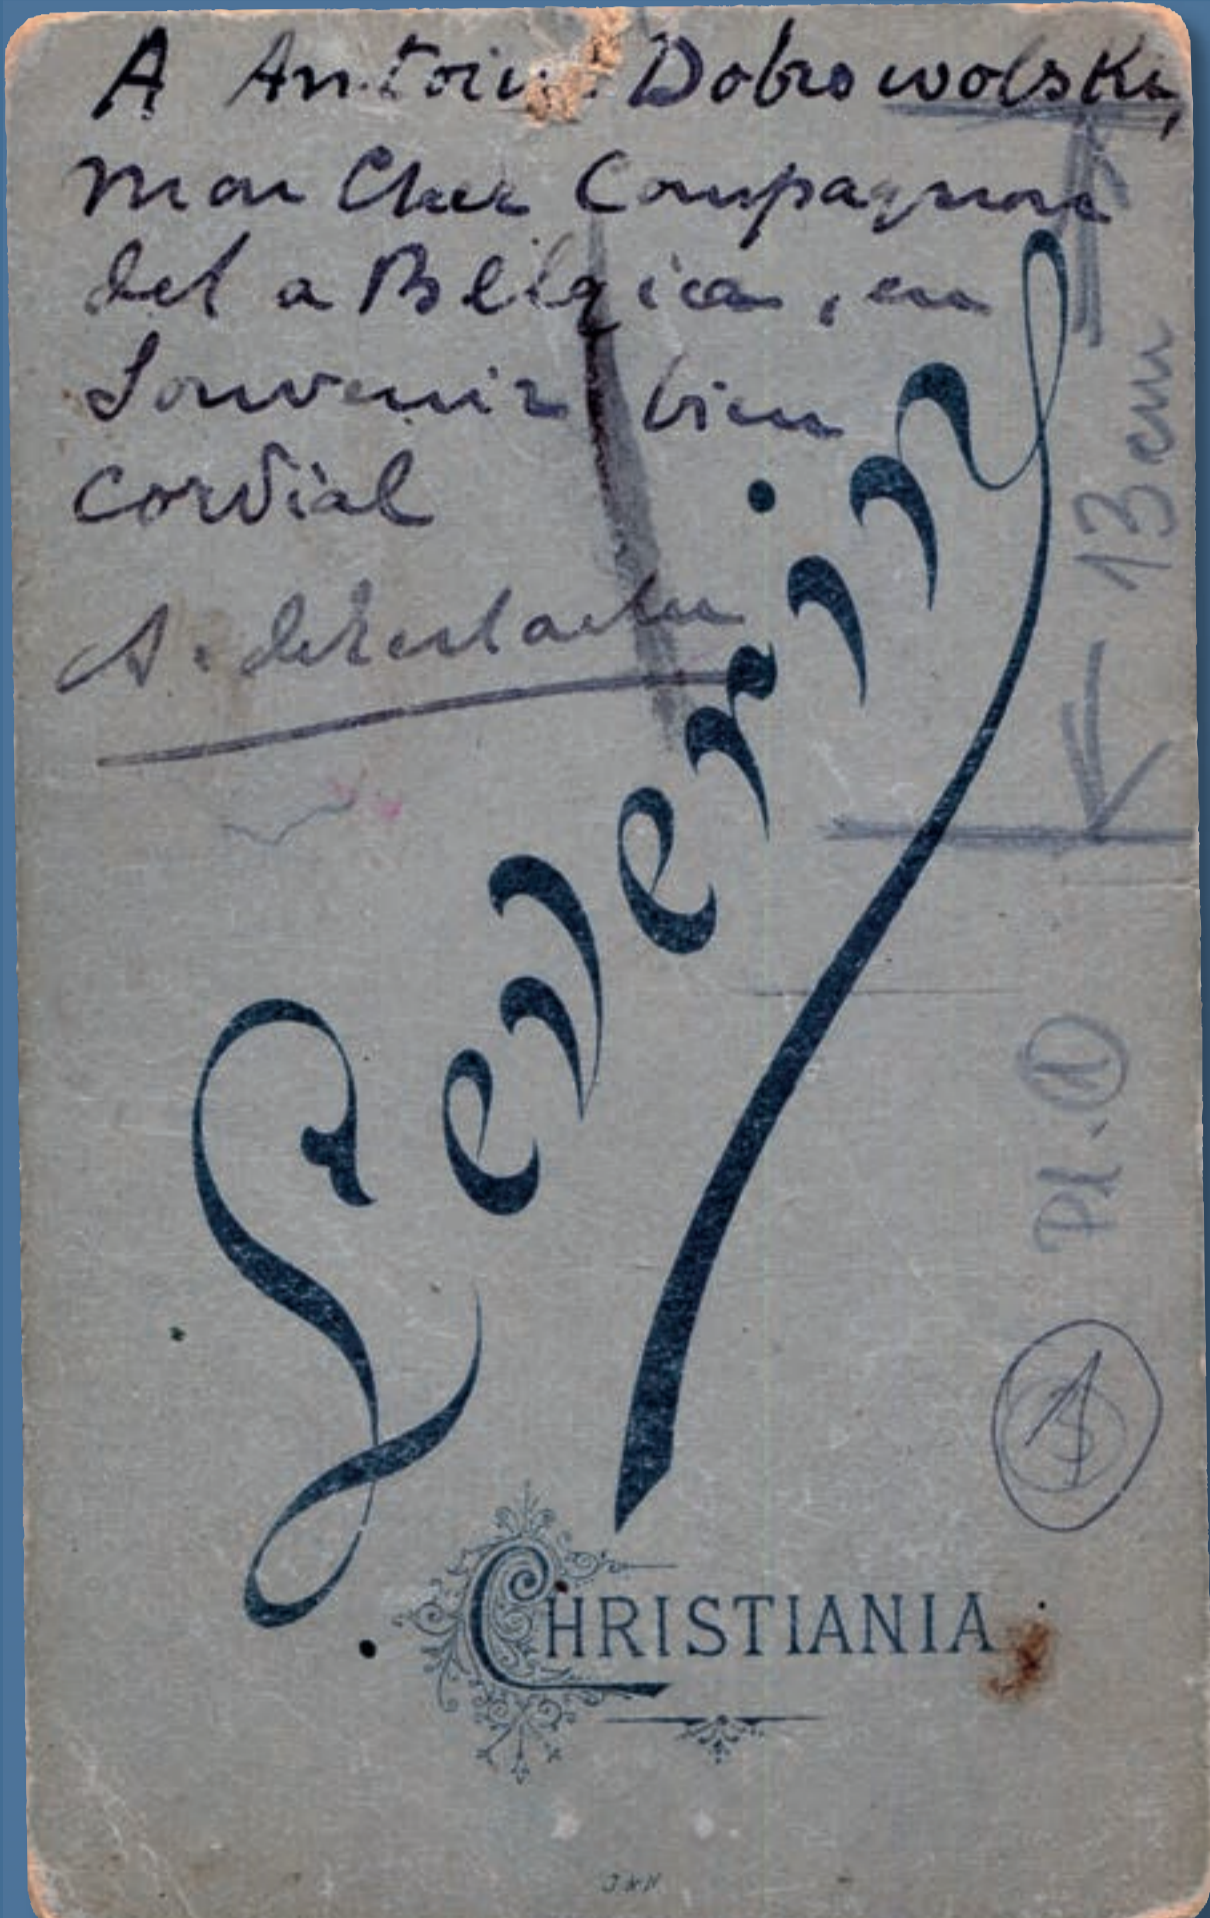 A Antoine Dobrowolski,
mon Cher Compagnon
del a Belgica, en
Souvenir bien
cordial
A. de Gerlache
Severin
13 cm
Pl. 1
1
CHRISTIANIA